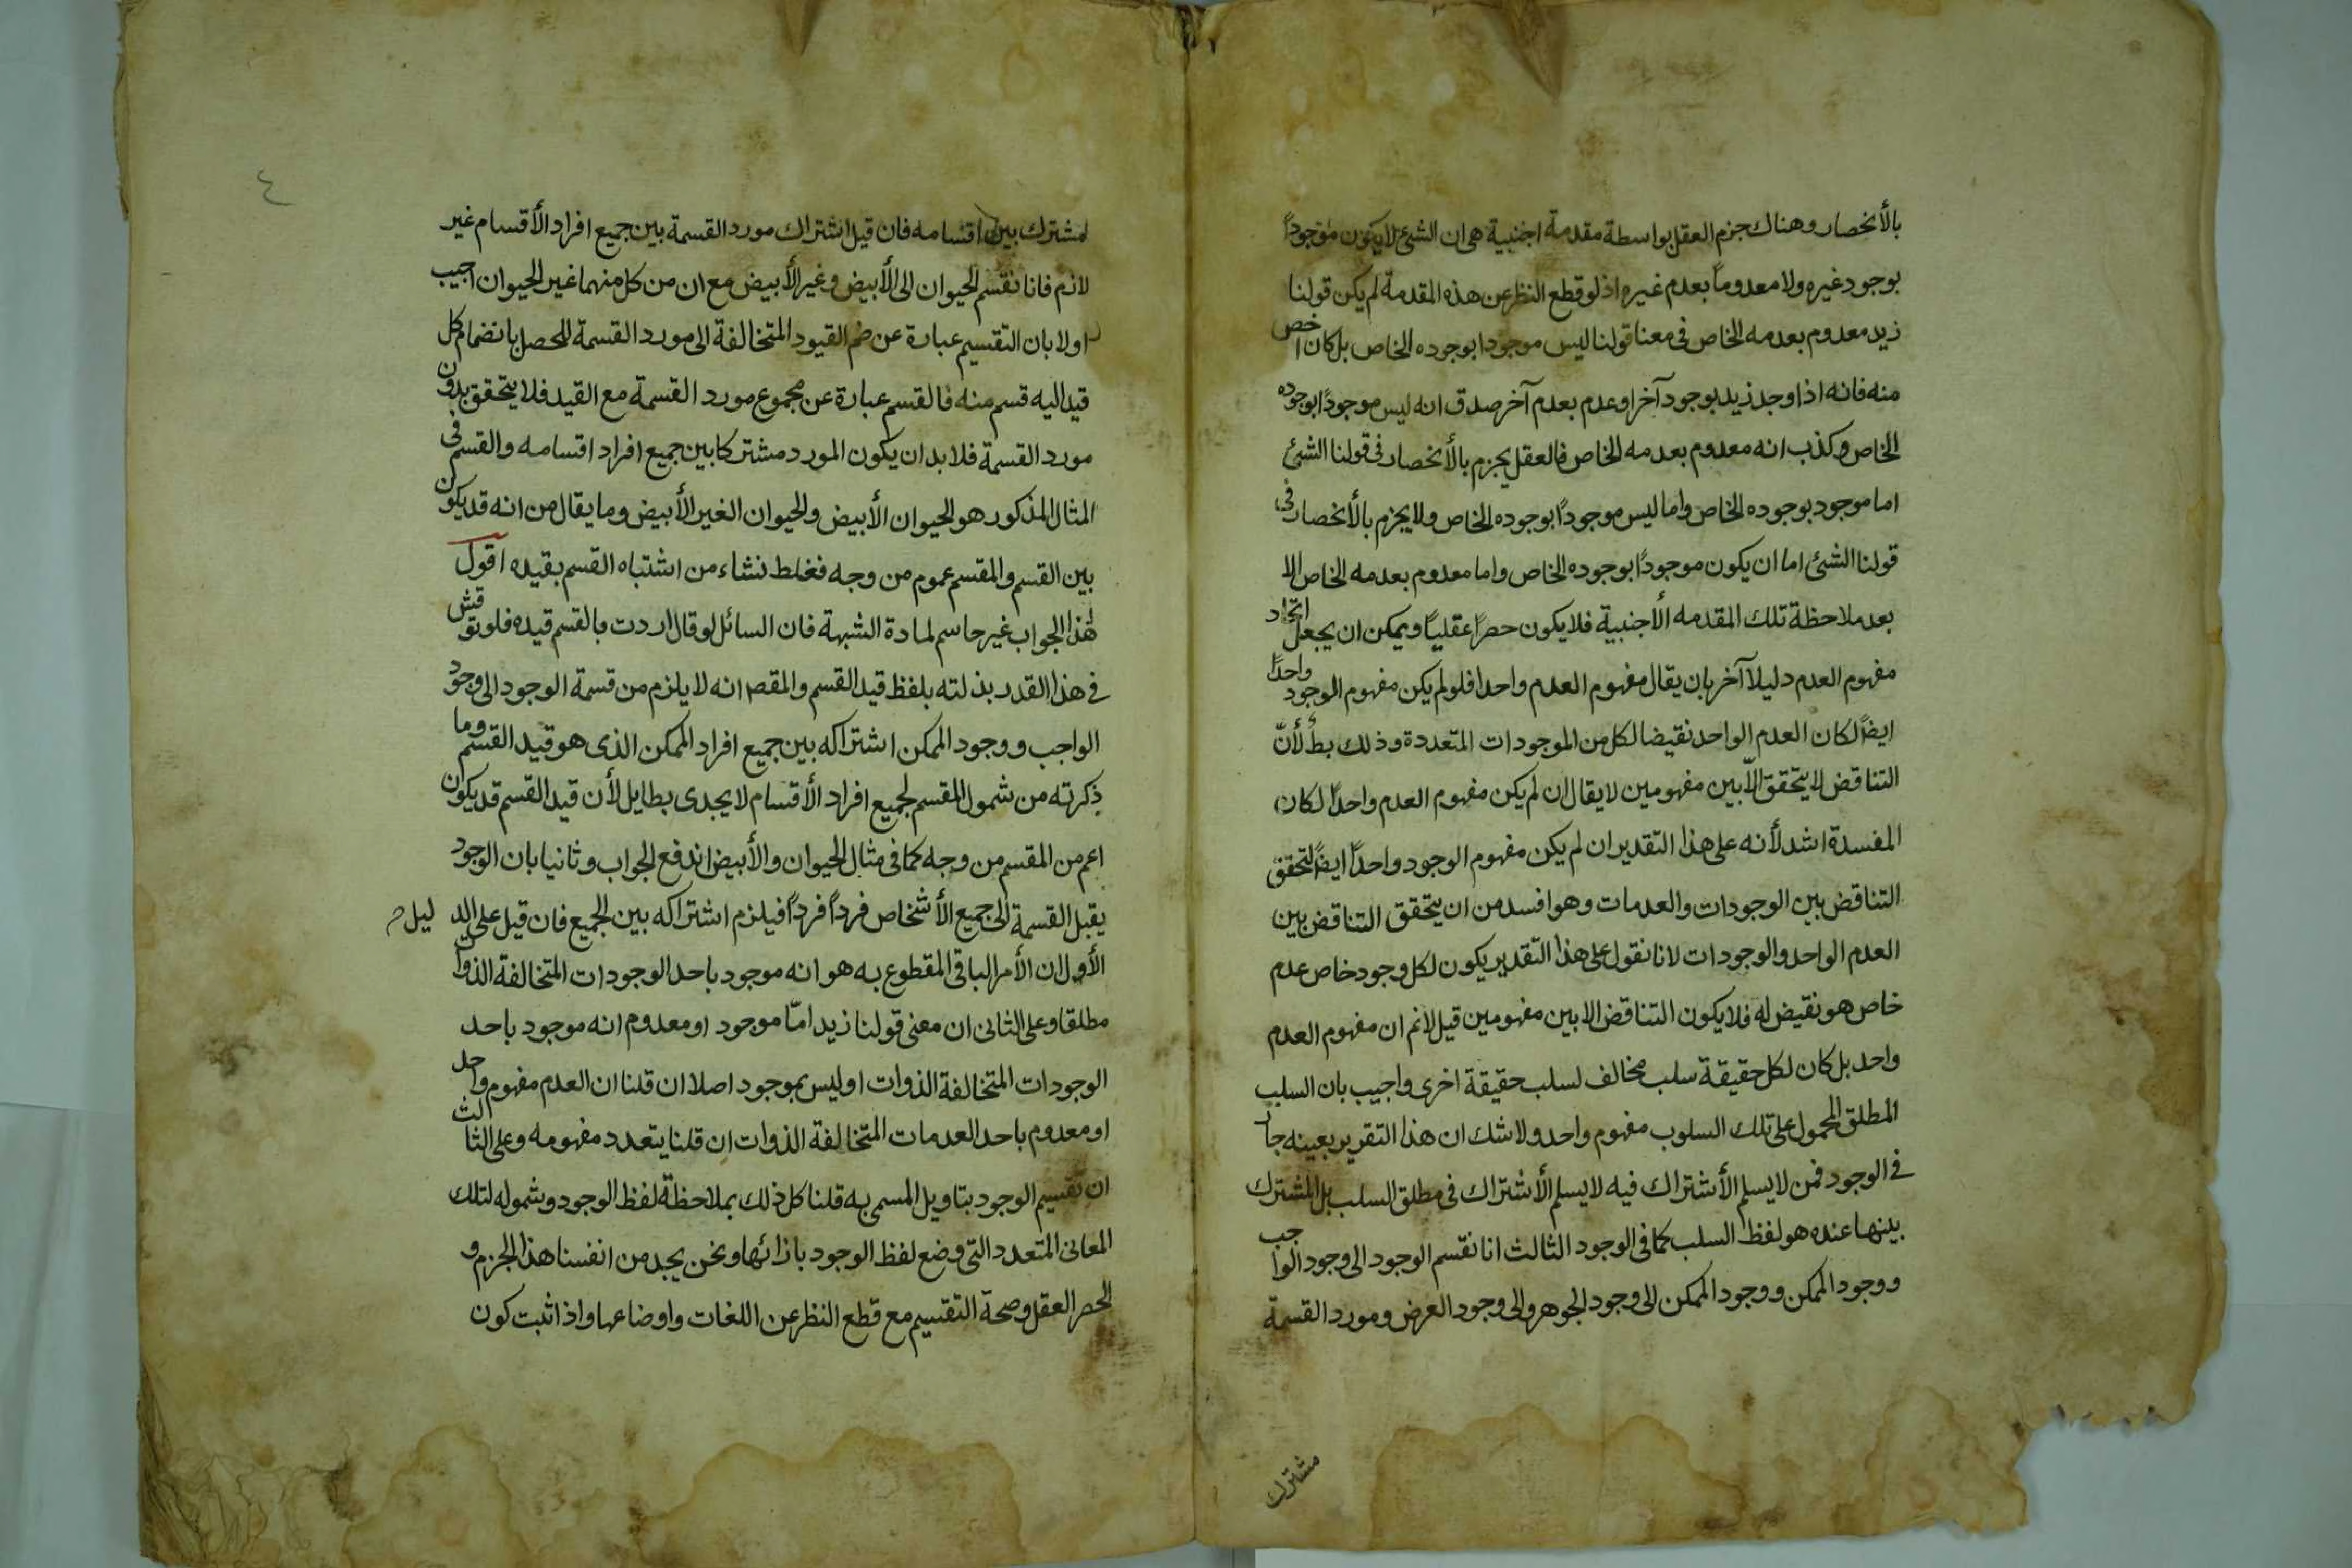 بالأنحصار وهناك جزم العقل بواسطة مقدمة اجنبية هى ان الشئ لا يكون موجوداً
بوجود غيره ولا معدوماً بعدم غيره اذ لو قطع النظر عن هذه المقدمة لم يكن قولنا
زيد معدوم بعدمه الخاص فى معنا قولنا ليس موجودا بوجوده الخاص بل كان اخص
منه فانه اذا وجد زيد بوجود آخر او عدم بعدم آخر صدق انه ليس موجوداً بوجوده
الخاص وكذب انه معدوم بعدمه الخاص فالعقل يجزم بالأنحصار فى قولنا الشئ
اما موجود بوجوده الخاص واما ليس موجوداً بوجوده الخاص ولا يجزم بالأنحصار فى
قولنا الشئ اما ان يكون موجوداً بوجوده الخاص واما معدوم بعدمه الخاص الا
بعد ملاحظة تلك المقدمه الأجنبية فلا يكون حصراً عقلياً ويمكن ان يجعل اتحاد
مفهوم العدم دليلاً آخر بان يقال مفهوم العدم واحد فلو لم يكن مفهوم الوجود واحدًا
ايضاً لكان العدم الواحد نقيضا لكل من الموجودات المتعددة وذلك بط لأنّ
التناقض لا يتحقق الّا بين مفهومين لا يقال ان لم يكن مفهوم العدم واحداً لكان
المفسدة اشد لأنه على هذا التقدير ان لم يكن مفهوم الوجود واحداً ايضاً لتحقق
التناقض بين الوجودات والعدمات وهو افسد من ان يتحقق التناقض بين
العدم الواحد والوجودات لانا نقول على هذا التقدير يكون لكل وجود خاص عدم
خاص هو نقيض له فلا يكون التناقض الا بين مفهومين قيل لا نم ان مفهوم العدم
واحد بل كان لكل حقيقة سلب مخالف لسلب حقيقة اخرى واجيب بان السلب
المطلق المحمول على تلك السلوب مفهوم واحد ولا شك ان هذا التقرير بعينه جار
فى الوجود فمن لا يسلم الأشتراك فيه لا يسلم الأشتراك فى مطلق السلب بل المشترك
بينها عنده هو لفظ السلب كما فى الوجود الثالث انا نقسّم الوجود الى وجود الواجب
ووجود الممكن ووجود الممكن الى وجود الجوهر والى وجود العرض ومورد القسمة
مشترك
٤
لمشترك بين اقسامه فان قيل اشتراك مورد القسمة بين جميع افراد الأقسام غير
لازم فانا نقسّم الحيوان الى الأبيض وغير الأبيض مع ان من كل منهما غير الحيوان اجيب
اولا بان التقسيم عبارة عن ضم القيود المتخالفة الى مورد القسمة ليحصل بانضمام كل
قيد اليه قسم منه فالقسم عبارة عن مجموع مورد القسمة مع القيد فلا يتحقق بدون
مورد القسمة فلا بد ان يكون المورد مشتركا بين جميع افراد اقسامه والقسم فى
المثال المذكور هو الحيوان الأبيض والحيوان الغير الأبيض وما يقال من انه قد يكون
بين القسم والمقسم عموم من وجه فغلط نشاء من اشتباه القسم بقيده اقول
هذا الجواب غير حاسم لمادة الشبهة فان السائل لو قال اردت بالقسم قيده فلو نوقش
فى هذا القدر بذلته بلفظ قيد القسم والمقص انه لا يلزم من قسمة الوجود الى وجود
الواجب ووجود الممكن اشتراكه بين جميع افراد الممكن الذى هو قيد القسم وما
ذكرته من شمول المقسم لجميع افراد الأقسام لا يجدى بطايل لأن قيد القسم قد يكون
اعم من المقسم من وجه كما فى مثال الحيوان والأبيض اندفع الجواب وثانيا بان الوجود
يقبل القسمة الى جميع الأشخاص فرداً فرداً فيلزم اشتراكه بين الجميع فان قيل على الد ليل
الأول ان الأمر الباقى المقطوع به هو انه موجود باحد الوجودات المتخالفة الذوات
مطلقا وعلى الثانى ان معنى قولنا زيد امّا موجود او معدوم انه موجود باحد
الوجودات المتخالفة الذوات او ليس بموجود اصلا ان قلنا ان العدم مفهوم واحد
او معدوم باحد العدمات المتخالفة الذوات ان قلنا يتعدد مفهومه وعلى الثالث
ان تقسيم الوجود بتاويل المسمى به قلنا كل ذلك بملاحظة لفظ الوجود وشموله لتلك
المعانى المتعدد التى وضع لفظ الوجود بازائها ونحن يجد من انفسنا هذا الجزم و
الحصر العقل وصحة التقسيم مع قطع النظر عن اللغات واوضاعها واذا ثبت كون